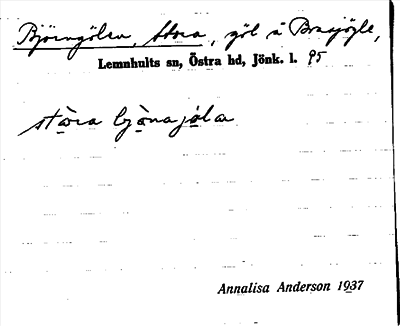 Björngölen, Stora, göl å Brasjögle,
Lemnhults sn, Östra hd, Jönk. l. 95
stora bjönajöla
Annalisa Anderson 1937